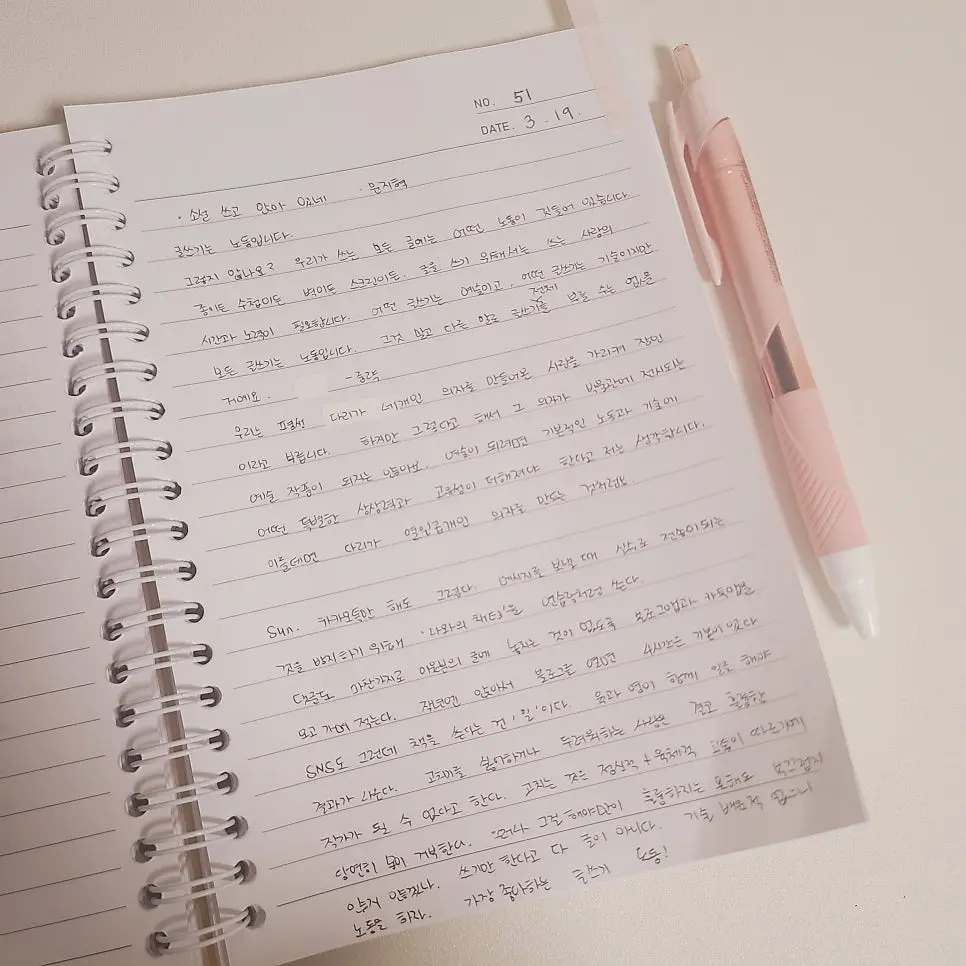 NO. 51
DATE. 3. 19.
· 소설 쓰고 앉아 있네 · 문지혁
글쓰기는 노동입니다.
그렇지 않나요? 우리가 쓰는 모든 글에는 어떤 노동이 깃들어 있습니다
종이든 수첩이든 벽이든 스크린이든. 글을 쓰기 위해서는 쓰는 사람의
시간과 노력이 필요합니다. 어떤 글쓰기는 예술이고, 어떤 글쓰기는 기술이지만
모든 글쓰기는 노동입니다. 그것 말고 다른 말로 글쓰기 전체를 부를 수는 없을
거예요. -중략
우리는 평생 다리가 네개인 의자를 만들어온 사람을 가리켜 장인
이라고 부릅니다. 하지만 그렇다고 해서 그 의자가 박물관에 전시되는
예술 작품이 되지는 않아요. 예술이 되려면 기본적인 노동과 기술에
어떤 특별한 상상력과 고유성이 더해져야 한다고 저는 생각합니다.
이를테면 다리가 열일곱개인 의자를 만드는 것처럼요.
Sun. 카카오톡만 해도 그렇다. 메시지를 보낼 때 실수로 전송이 되는
것을 방지하기 위해 '나와의 채팅'을 연습장처럼 쓴다.
댓글도 마찬가지로 이웃분의 글에 놓치는 것이 없도록 블로그앱과 카톡앱을
오고 가며 적는다. 작년엔 앉아서 블로그를 열면 4시간은 기본이었다
SNS도 그런데 책을 쓴다는 건 '일'이다. 육과 영이 함께 일을 해야
결과가 나온다. 고치기를 불안하거나 두려워하는 사람은 결코 훌륭한
작가가 될 수 없다고 한다. 고치는 것은 정신적 + 육체적 고통이 따르기에
당연히 몸이 거부한다. 그러나 그걸 해야만이 훌륭하지는 못해도 부끄럽지
않겠나. 쓰기만 한다고 다 글이 아니다. 기술 배운적 없으니
노동을 하자. 가장 좋아하는 글쓰기 노동!